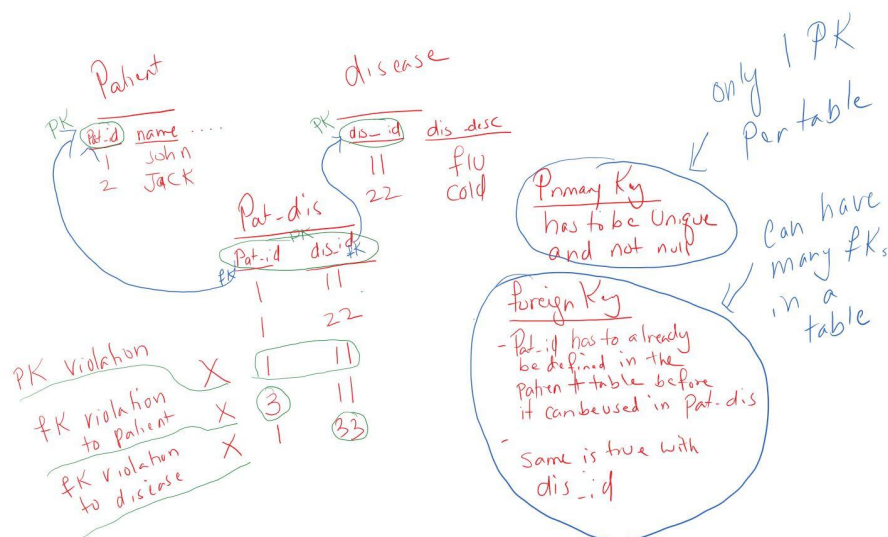 Patient
PK
Pat_id name ....
1 John
2 JACK
disease
PK
dis_id dis_desc
11 flu
22 cold
Pat_dis
PK
Pat_id dis_id
fK fK
1 11
1 22
PK violation X 1 11
fK violation to patient X 3 11
fK violation to disease X 1 33
only 1 PK
Per table
Primary Key
has to be Unique
and not null
Can have
many fKs
in a
table
foreign Key
- Pat_id has to already
be defined in the
Patient table before
it can be used in Pat_dis
-
Same is true with
dis_id